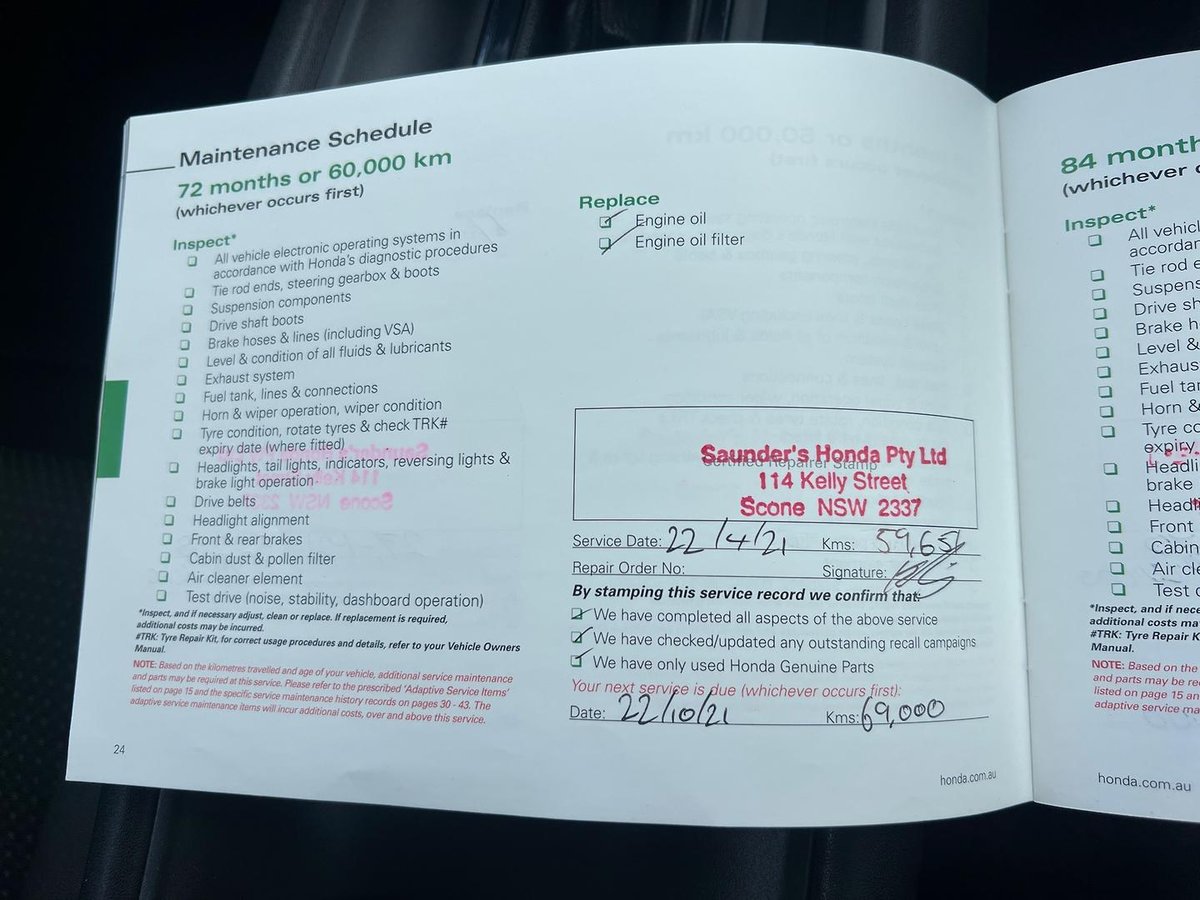 Maintenance Schedule
72 months or 60,000 km
(whichever occurs first)
Inspect*
All vehicle electronic operating systems in
accordance with Honda's diagnostic procedures
Tie rod ends, steering gearbox & boots
Suspension components
Drive shaft boots
Brake hoses & lines (including VSA)
Level & condition of all fluids & lubricants
Exhaust system
Fuel tank, lines & connections
Horn & wiper operation, wiper condition
Tyre condition, rotate tyres & check TRK#
expiry date (where fitted)
Headlights, tail lights, indicators, reversing lights &
brake light operation
Drive belts
Headlight alignment
Front & rear brakes
Cabin dust & pollen filter
Air cleaner element
Test drive (noise, stability, dashboard operation)
*Inspect, and if necessary adjust, clean or replace. If replacement is required,
additional costs may be incurred.
#TRK: Tyre Repair Kit, for correct usage procedures and details, refer to your Vehicle Owners
Manual.
NOTE: Based on the kilometres travelled and age of your vehicle, additional service maintenance
and parts may be required at this service. Please refer to the prescribed 'Adaptive Service Items'
listed on page 15 and the specific service maintenance history records on pages 30 - 43. The
adaptive service maintenance items will incur additional costs, over and above this service.
24
Replace
Engine oil
Engine oil filter
Saunder's Honda Pty Ltd
Certified Repairer Stamp
114 Kelly Street
Scone NSW 2337
Service Date: 22/4/21 Kms: 59,651
Repair Order No: Signature:
By stamping this service record we confirm that:
We have completed all aspects of the above service
We have checked/updated any outstanding recall campaigns
We have only used Honda Genuine Parts
Your next service is due (whichever occurs first):
Date: 22/10/21 Kms: 69,000
honda.com.au
84 month
(whichever
Inspect*
All vehicl
accordan
Tie rod e
Suspens
Drive sh
Brake h
Level &
Exhaus
Fuel tan
Horn &
Tyre co
expiry
Headli
brake
Headl
Front
Cabin
Air cle
Test
*Inspect, and if nece
additional costs ma
#TRK: Tyre Repair K
Manual.
NOTE: Based on the
and parts may be re
listed on page 15 an
adaptive service ma
honda.com.au